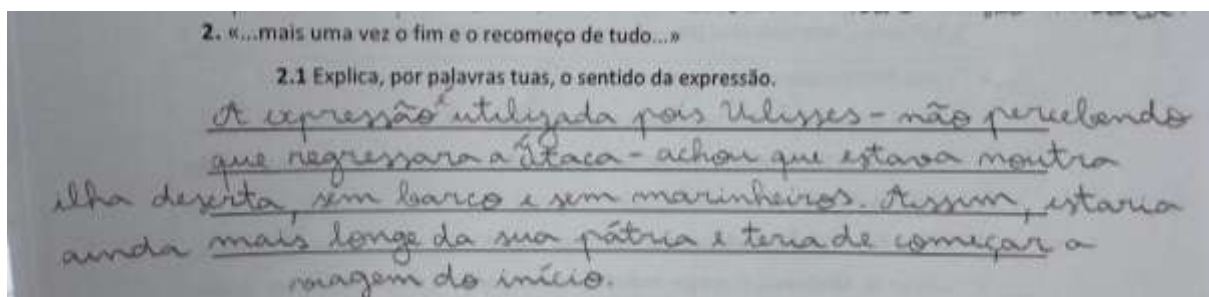 2. «...mais uma vez o fim e o recomeço de tudo...»
2.1 Explica, por palavras tuas, o sentido da expressão.
A expressão é utilizada pois Ulisses - não percebendo
que regressara a Ítaca - achou que estava noutra
ilha deserta, sem barco e sem marinheiros. Assim, estaria
ainda mais longe da sua pátria e teria de começar a
viagem do início.